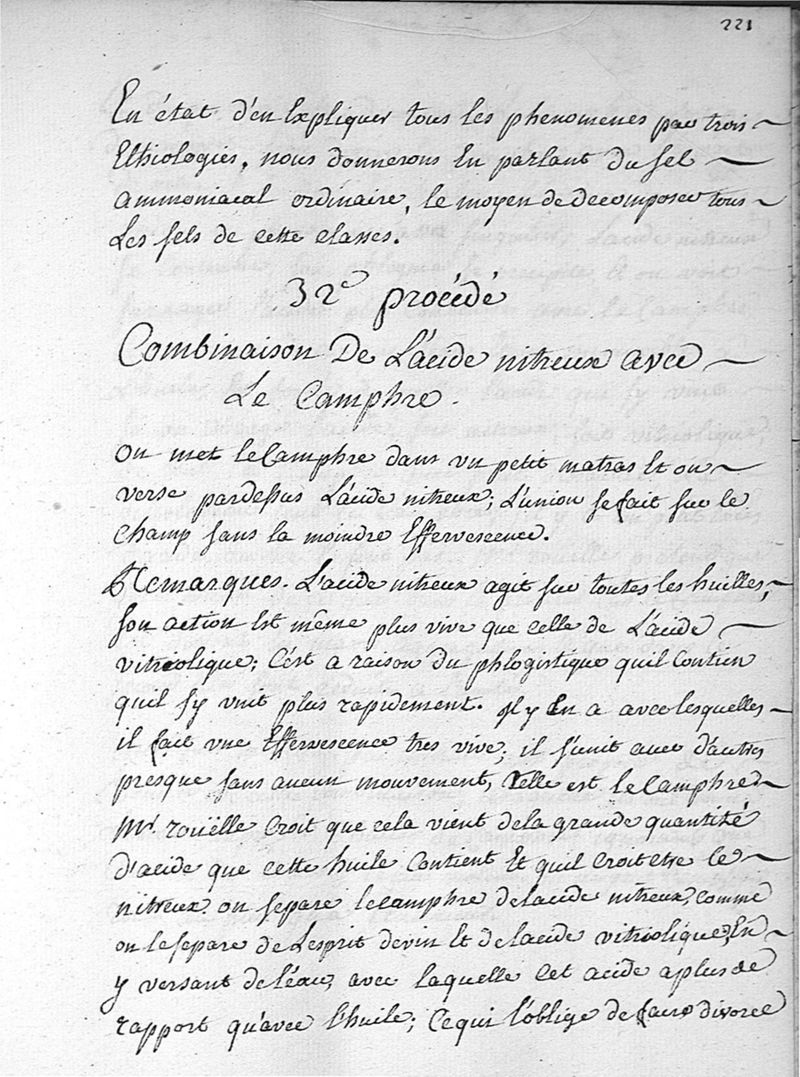 221
En état d'en Expliquer tous les phenomenes par trois
Ethiologies, nous donnerons En parlant du sel
ammoniacal ordinaire, le moyen de decomposer tous
Les sels de cette classes.
32e procédé
Combinaison De L'acide nitreux avec
Le Camphre.
on met le Camphre dans un petit matras Et on
verse pardessus L'acide nitreux; L'union se fait sur le
champ sans la moindre Effervescence.
Remarques. L'acide nitreux agit sur toutes les huilles,
son action Est même plus vive que celle de L'acide
vitriolique; C'est a raison du phlogistique quil Contien
quil s'y unit plus rapidement. il y En a avec lesquelles
il fait une Effervescence tres vive; il s'unit avec d'autres
presque sans aucun mouvement, Telle est le Camphre
Mr. roüelle Croit que cela vient de la grande quantité
d'acide que cette huile Contient Et quil Croit etre le
nitreux. on separe le camphre de lacide nitreux, comme
on le separe de L'esprit de vin Et de lacide vitriolique, En
y versant de l'eau, avec laquelle Cet acide a plus de
rapport qu'avec l'huile; Ce qui l'oblige de faire divorce